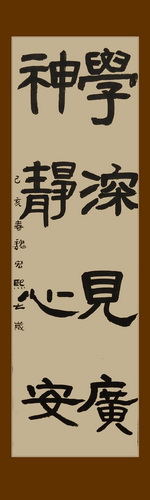 學深見廣
神靜心安
己亥春魏宏熙七歲